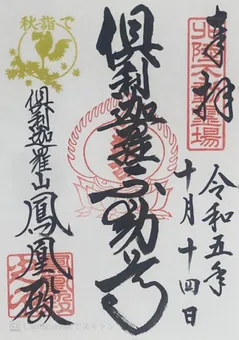 奉拝
令和五年
十月十四日
倶利迦羅不動尊
秋詣で
倶利迦羅山
鳳凰殿